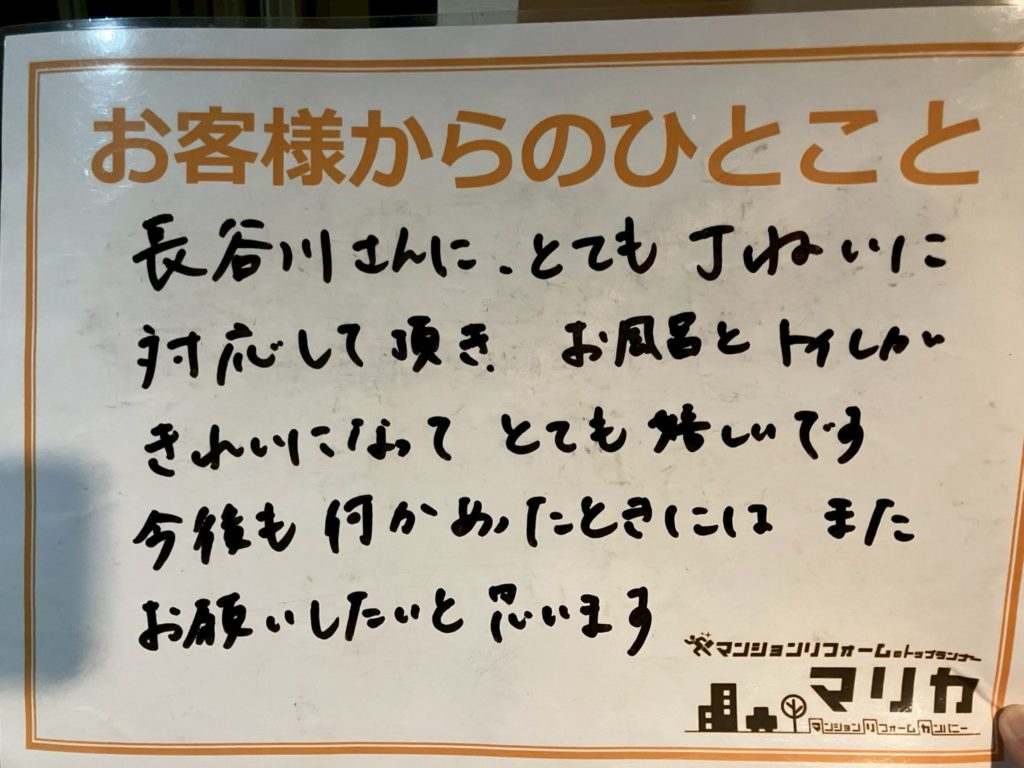 お客様からのひとこと
長谷川さんに、とても丁ねいに
対応して頂き、お風呂とトイレが
きれいになって とても嬉しいです
今後も何かあったときには また
お願いしたいと思います
マンションリフォームのトップランナー
マリカ
マンションリフォームカンパニー